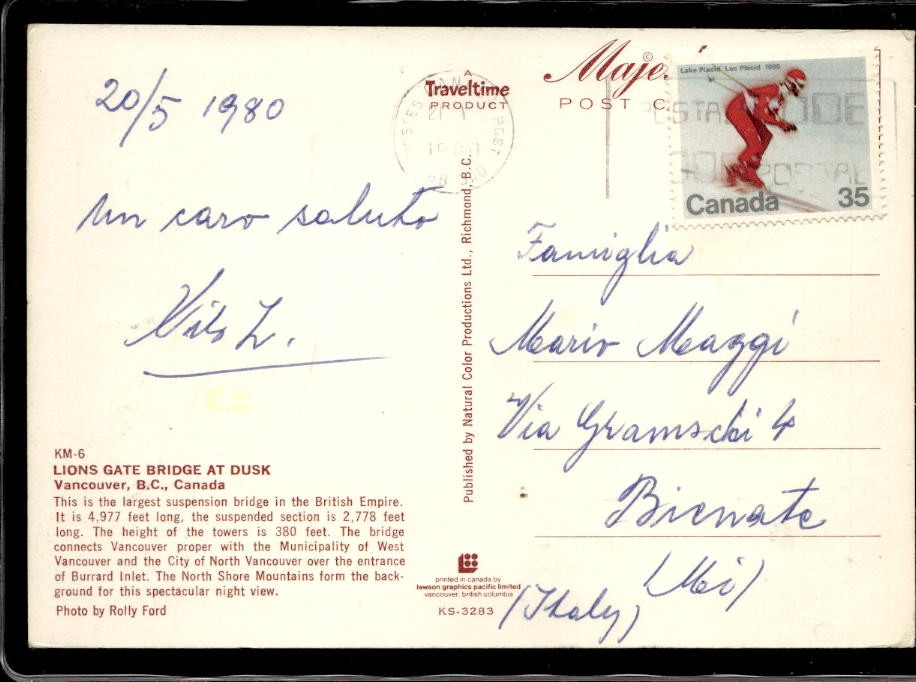 20/5 1980
un caro saluto
Vito Z.
KM-6
LIONS GATE BRIDGE AT DUSK
Vancouver, B.C., Canada
This is the largest suspension bridge in the British Empire.
It is 4,977 feet long, the suspended section is 2,778 feet
long. The height of the towers is 380 feet. The bridge
connects Vancouver proper with the Municipality of West
Vancouver and the City of North Vancouver over the entrance
of Burrard Inlet. The North Shore Mountains form the back-
ground for this spectacular night view.
Photo by Rolly Ford
A
Traveltime
PRODUCT
Published by Natural Color Productions Ltd., Richmond, B.C.
printed in canada by
lawson graphics pacific limited
vancouver, british columbia
KS-3283
©
POST C
Lake Placid, Lac Placid 1980
Canada 35
POSTAL
Famiglia
Mario Maggi
Via Gramschi 4
Bienate
(Mi)
(Ithaly)